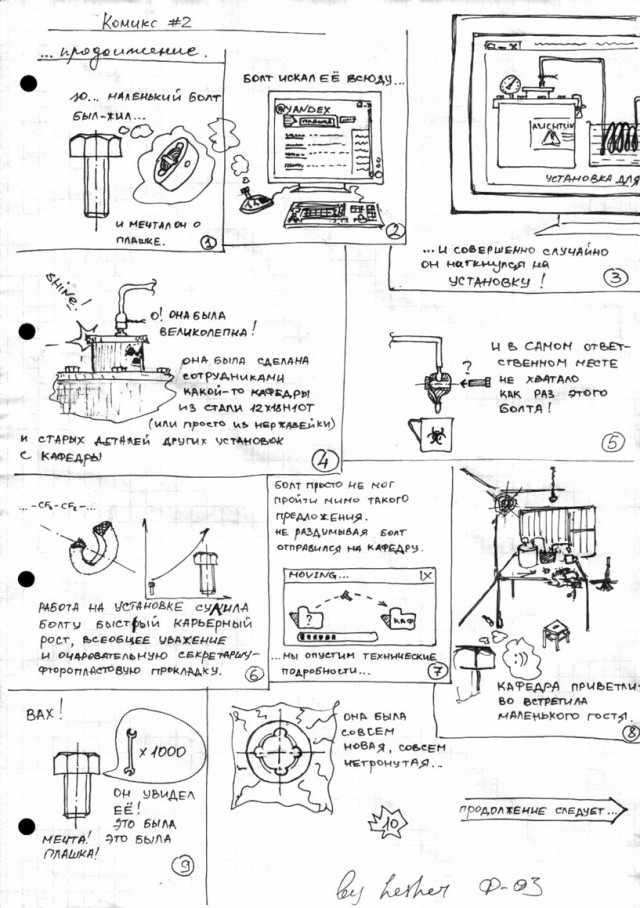 Комикс #2
...продолжение.
Ю... маленький болт
был-жил...
и мечтал он о
плашке.
1
Болт искал её всюду...
@YANDEX
плашка
2
УСТАНОВКА ДЛЯ
...и совершенно случайно
он наткнулся на
установку!
3
SHINE!
О! Она была
великолепна!
она была сделана
сотрудниками
какой-то кафедры
из стали 12Х18Н10Т
(или просто из нержавейки)
и старых деталей других установок
с кафедры
4
?
и в самом ответ-
ственном месте
не хватало
как раз этого
болта!
5
...-CF₂-CF₂-...
Работа на установке сулила
болту быстрый карьерный
рост, всеобщее уважение
и очаровательную секретаршу-
фторопластовую прокладку.
6
Болт просто не мог
пройти мимо такого
предложения.
Не раздумывая болт
отправился на кафедру.
MOVING... X
? КАФ
...мы опустим технические
подробности...
7
:))
Кафедра приветли-
во встретила
маленького гостя.
8
ВАХ!
х1000
Он увидел
её!
Это была
мечта! это была
плашка!
9
Она была
совсем
новая, совсем
нетронутая...
10
продолжение следует...
by Lesher Ф-03